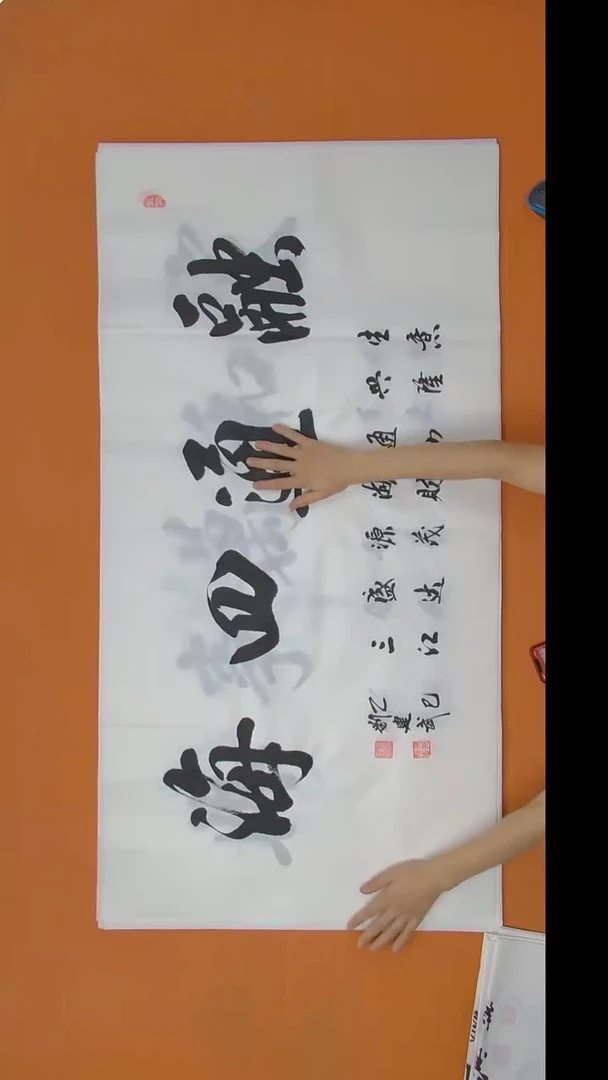 融通四海
生意
兴隆
通
海财
源茂
盛达
三江
乙巳
劉建武